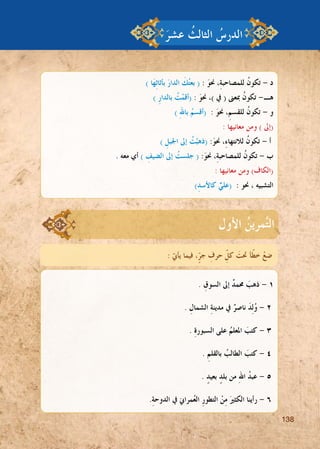 الدرسُ الثالثُ عشرَ
د – تكونُ للمصاحبةِ، نحوَ : ( بِعتُكَ الدارَ بأثاثِها )
هـ – تكونُ بمعنى ( في )، نحوَ : (أقمْتُ بالدارِ )
و – تكونُ للقسمِ، نحوَ : (أقسمُ باللهِ )
(إلى) ومن معانيها :
أ – تكونُ للانتهاءِ، نحوَ: (ذهبْتُ إلى الجبلِ )
ب – تكونُ للمصاحبةِ، نحوَ: ( جلستُ إلى الضيفِ ) أي معه .
(الكاف) ومن معانيها :
التشبيه ، نحو : (عليٌّ كالأسدِ)
التَّمرينُ الأول
ضعْ خطًا تحتَ كلِّ حرفِ جرٍّ، فيما يأتي :
١ – ذهبَ محمدٌ إلى السوقِ .
٢ – وُلِدَ ناصرٌ في مدينةِ الشمالِ .
٣ – كتبَ المعلمُ على السبورةِ .
٤ – كتبَ الطالبُ بالقلمِ .
٥ – عبدُ اللهِ من بلدٍ بعيدٍ .
٦ – رأينا الكثيرَ مِنْ التطورِ العُمراني في الدوحةِ.
138